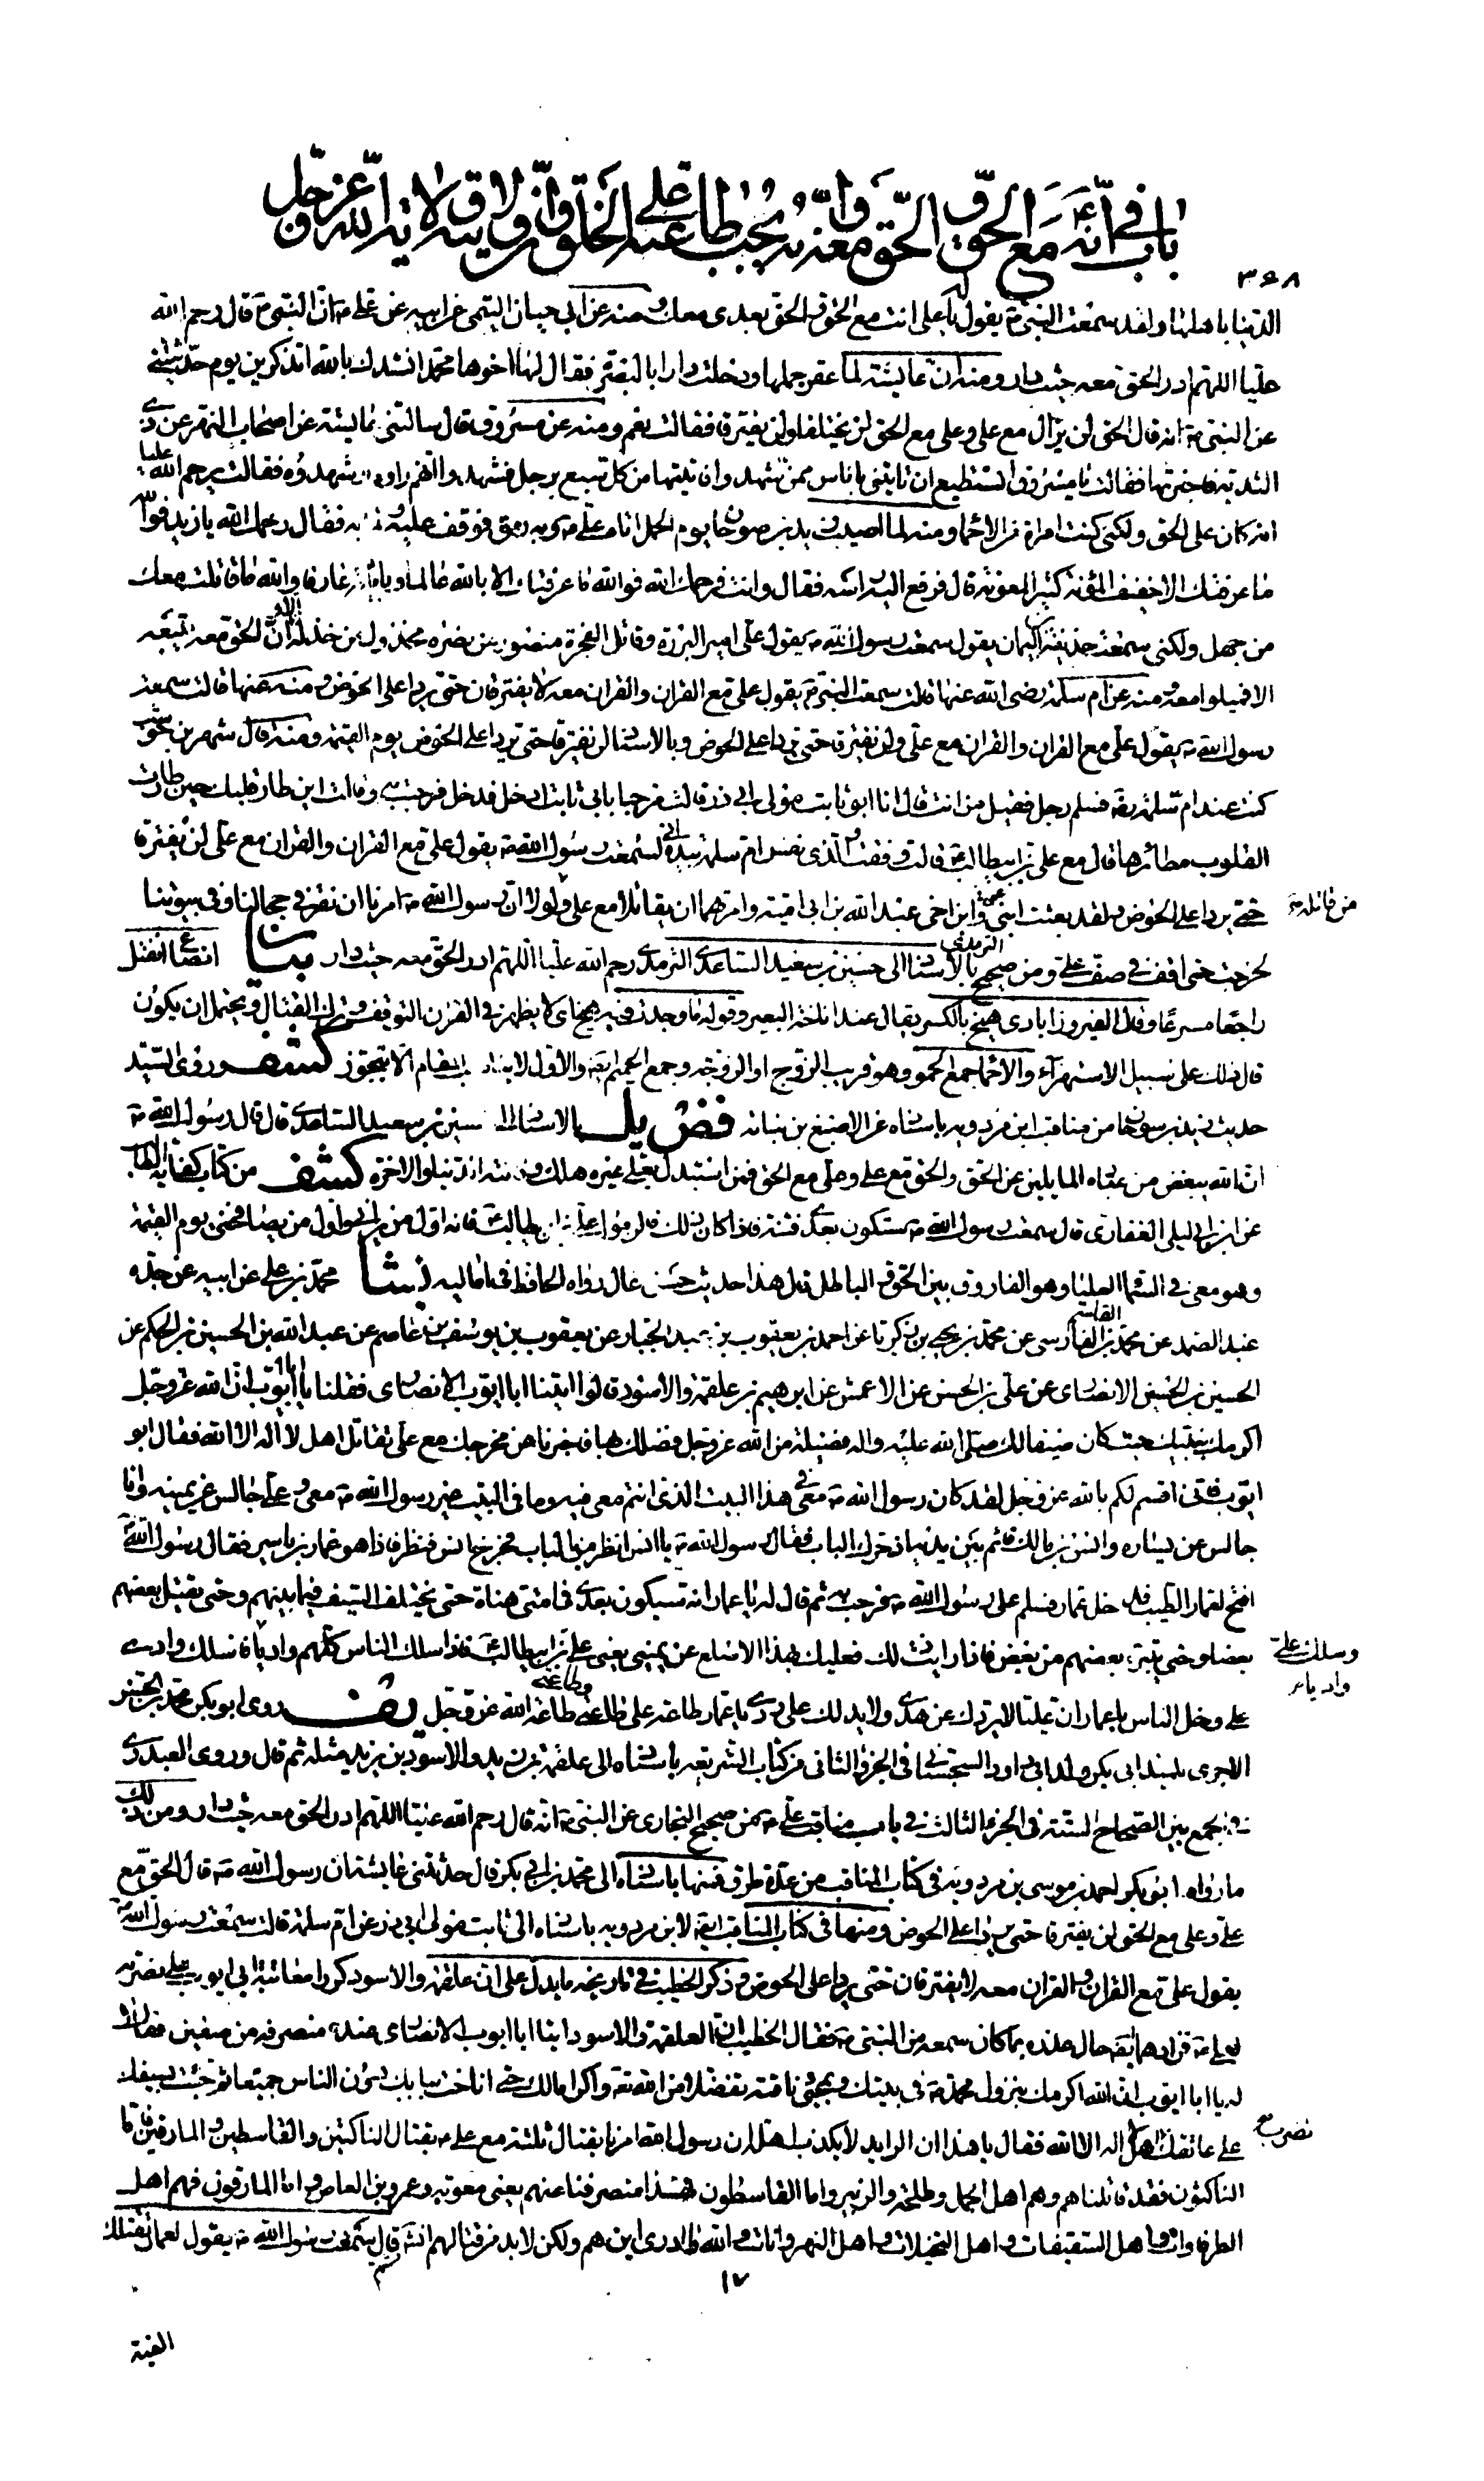 باب في انه ع مع الحق و الحق معه و انه يجب طاعته على الخلق و ان ولايته ولاية الله عز و جل
٣٦٨
الدنيا باهلها ولقد سمعت النبي ص يقول يا علي انت مع الحق و الحق بعدى معك و منه عن ابي حيان التيمي عن ابيه عن علي ع ان النبي ص قال رحم الله
عليا اللهم ادر الحق معه حيث دار و منه ان عايشة لما عقر جملها و دخلت دارا بالبصرة فقال لها اخوها محمد انشدك بالله اتذكرين يوم حدثتني
عن النبي ص انه قال الحق لن يزال مع علي و علي مع الحق لن يختلفا و لن يفترقا فقالت نعم و منه عن مسروق قال سالتني عايشة عن اصحاب النهر عن ذي
الثدية فاخبرتها فقالت يا مسروق اتستطيع ان تاتيني باناس ممن شهد و ان تاتيها من كل سبع برجل فشهدوا انهم راوه شهدوه فقالت يرحم الله عليا
انه كان على الحق ولكني كنت امراة من الاحماء و منه لما اصيب زيد بن صوحان يوم الجمل اتاه علي ع و به رمق فوقف عليه فقال رحمك الله يا زيد فوالله
ما عرفتك الا خفيف المؤنة كثير المعونة قال فرفع اليه راسه فقال و انت فرحمك الله فوالله ما عرفتك الا بالله عالما و باياته عارفا والله ما قاتلت معك
من جهل ولكني سمعت حذيفة بن اليمان يقول سمعت رسول الله ص يقول علي امير البررة و قاتل الفجرة منصور من نصره مخذول من خذله الا و ان الحق معه يتبعه
الا فميلوا معه و منه عن ام سلمة رضى الله عنها قالت سمعت النبي ص يقول علي مع القران و القران معه لا يفترقان حتى يردا على الحوض و منه عنها قالت سمعت
رسول الله ص يقول علي مع القران و القران مع علي و لن يفترقا حتى يردا على الحوض و بالاسناد لن يفترقا حتى يردا على الحوض يوم القيمة و منه قال شهر بن حوشب
كنت عند ام سلمة رضه فسلم رجل فقيل من انت قال انا ابو ثابت مولى ابي ذر قالت مرحبا بابي ثابت ادخل فدخل فرحبت به و قالت اين طار قلبك حين طارت
القلوب مطائرها قال مع علي بن ابي طالب ع قالت وفقت و الذي نفس ام سلمة بيده اني لسمعت رسول الله ص يقول علي مع القران و القران مع علي لن يفترقا
حتى يردا على الحوض و لقد بعثت ابني عمر و ابن اخي عبد الله بن ابي امية و امرتهما ان يقاتلا مع علي و لولا ان رسول الله ص امرنا ان نقر في حجالنا و في بيوتنا
من قاتله
لخرجت حتى اقف في صف علي و من صحيح الترمذي بالاسناد الى حنين بن سعيد الساعدى الترمذى رحم الله عليا اللهم ادر الحق معه حيث دار بيان انصاع انفتل
راجعا مسرعا و قال الفيروزابادى هيخ بالكسر يقال عند اناخة البعير و قوله ما وجدت فيه هيخاى لا يظهر في القران التوقف و ترك القتال و يحتمل ان يكون
قال ذلك على سبيل الاستهزآء و الاحماء جمع الحمو و هو قريب الزوج او الزوجة و جمع الحميم ايضا و الاول لايناسب المقام الا بتجوز كشف و روى السيد
حديث زيد بن صوحان من مناقب ابن مردويه باسناده عن الاصبغ بن نباتة فض يل بالاسناد الى حنين بن سعيد الساعدى قال قال رسول الله ص
ان الله يبغض من عباده المايلين عن الحق و الحق مع علي و علي مع الحق فمن استبدل بعلي غيره هلك و فاتته الدنيا و الاخرة كشف من كتاب كفاية الطالب
عن ابي ليلى الغفارى قال سمعت رسول الله ص ستكون بعدى فتنة فاذا كان ذلك فالزموا علي بن ابي طالب ع فانه اول من يراني و اول من يصافحني يوم القيمة
و هو معي في السماء العليا و هو الفاروق بين الحق و الباطل قال هذا حديث حسن عال رواه الحافظ في اماليه بشا محمد بن علي عن ابيه عن جده
عبد الصمد عن محمد بن القاسم الفارسى عن محمد بن يحيى بن زكريا عن احمد بن يعقوب بن عبد الجبار عن يعقوب بن يوسف بن عاصم عن عبد الله بن الحسين بن الحكم عن
الحسين بن الحسن الانصارى عن علي بن الحسن عن الاعمش عن ابرهيم بن علقمة و الاسود قالوا اتينا ابا ايوب الانصارى فقلنا يا ابا ايوب ان الله عز و جل
اكرمك بنبيك حيث كان ضيفا لك صلى الله عليه و اله فضيلة من الله عز و جل فضلك بها فاخبرنا عن مخرجك مع علي تقاتل اهل لا اله الا الله فقال ابو
ايوب فاني اقسم لكم بالله عز و جل لقد كان رسول الله ص معي في هذا البيت الذى انتم معي فيه و ما في البيت غير رسول الله ص معي و علي جالس عن يمينه و انا
جالس عن يساره و انس بن مالك قائم بين يديه اذ حرك الباب فقال رسول الله ص يا انس انظر من بالباب فخرج انس فنظر فاذا هو عمار بن ياسر فقال رسول الله ص
افتح لعمار الطيب فدخل عمار فسلم على رسول الله ص فرحب به ثم قال له يا عمار انه سيكون بعدى في امتي هناة حتى يختلف السيف فيما بينهم و حتى يقتل بعضهم
بعضا و حتى يتبرء بعضهم من بعض فاذا رايت ذلك فعليك بهذا الاصلع عن يميني يعنى علي بن ابي طالب ع فاذا سلك الناس كلهم واديا فاسلك وادى
و سلك علي
واديا
علي و خل الناس يا عمار ان عليا لا يردك عن هدى و لا يدلك على ردى يا عمار طاعة علي طاعتي و طاعتي طاعة الله عز و جل يف روى ابو بكر محمد بن الحسين
الاجرى تلميذ ابي بكر ولد ابي داود السجستاني في الجزء الثاني من كتاب الشريعة باسناده الى علقمة بن يزيد و الاسود بن يزيد مثله ثم قال و روى العبدرى
في الجمع بين الصحاح الستة في الجزء الثالث في باب مناقب علي ع من صحيح البخارى عن النبي ص انه قال رحم الله عليا اللهم ادر الحق معه حيث دار و من ذلك
ما رواه ابو بكر احمد بن موسى بن مردويه في كتاب المناقب من عدة طرق فمنها باسناده الى محمد بن ابي بكر قال حدثتني عايشة ان رسول الله ص قال الحق مع
علي و علي مع الحق لن يفترقا حتى يردا على الحوض و منها في كتاب المناقب ايضا لابن مردويه باسناده الى ثابت مولى ابي ذر عن ام سلمة قالت سمعت رسول الله ص
يقول علي مع القران و القران معه لا يفترقان حتى يردا على الحوض و ذكر الخطيب في تاريخه ما يدل على ان علقمة و الاسود كررا معاتبة ابي ايوب على نصرته
لعلي ع فزادهما ايضا حال عذره بما كان سمعه من النبي ص فقال الخطيب ان العلقمة و الاسود اتيا ابا ايوب الانصارى عند منصرفه من صفين فقالا
له يا ابا ايوب ان الله اكرمك بنزول محمد ص في بيتك و بمجيئ ناقته تفضلا من الله تعالى و اكراما لك حتى اناخت ببابك دون الناس جميعا ثم جئت بسيفك
على عاتقك تضرب به اهل لا اله الا الله فقال يا هذا ان الرايد لا يكذب اهله ان رسول الله امرنا بقتال ثلثة مع علي ع بقتال الناكثين و القاسطين و المارقين فاما
تضرب به
الناكثون فقد قاتلناهم و هم اهل الجمل و طلحة و الزبير و اما القاسطون فهذا منصرفنا عنهم يعنى معوية و عمرو بن العاص و اما المارقون فهم اهل
الطرفاوات و اهل السقيفات و اهل النخيلات و اهل النهروانات و الله ما ادرى اين هم ولكن لا بد من قتالهم انشاء قال ثم سمعت رسول الله ص يقول لعمار تقتلك
١٧
الفئة